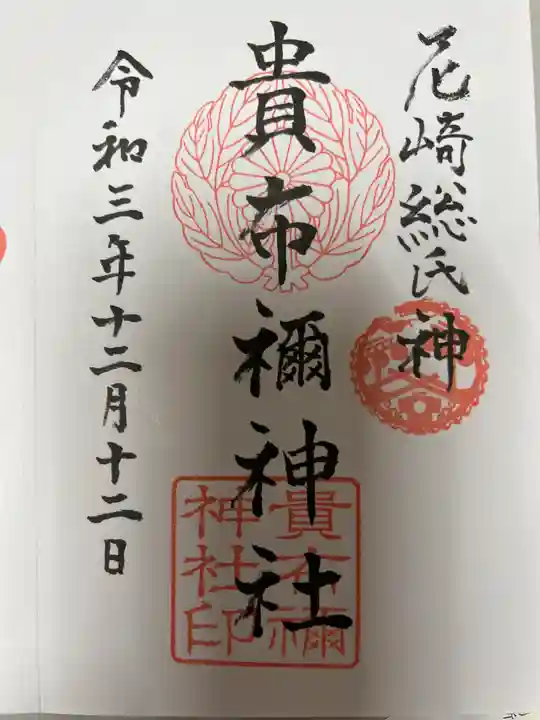 尼崎総氏神
貴布禰神社
貴布禰
神社印
令和三年十二月十二日